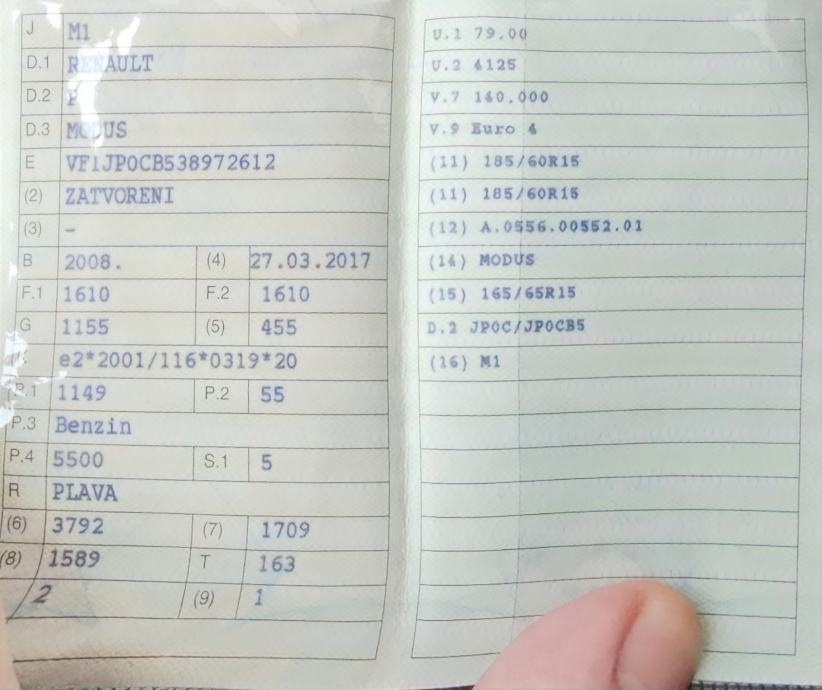 J M1
D.1 RENAULT
D.2 P
D.3 MODUS
E VF1JP0CB538972612
(2) ZATVORENI
(3) -
B 2008. (4) 27.03.2017
F.1 1610 F.2 1610
G 1155 (5) 455
K e2*2001/116*0319*20
P.1 1149 P.2 55
P.3 Benzin
P.4 5500 S.1 5
R PLAVA
(6) 3792 (7) 1709
(8) 1589 T 163
2 (9) 1
U.1 79.00
U.2 4125
V.7 140.000
V.9 Euro 4
(11) 185/60R15
(11) 185/60R15
(12) A.0556.00552.01
(14) MODUS
(15) 165/65R15
D.2 JP0C/JP0CB5
(16) M1